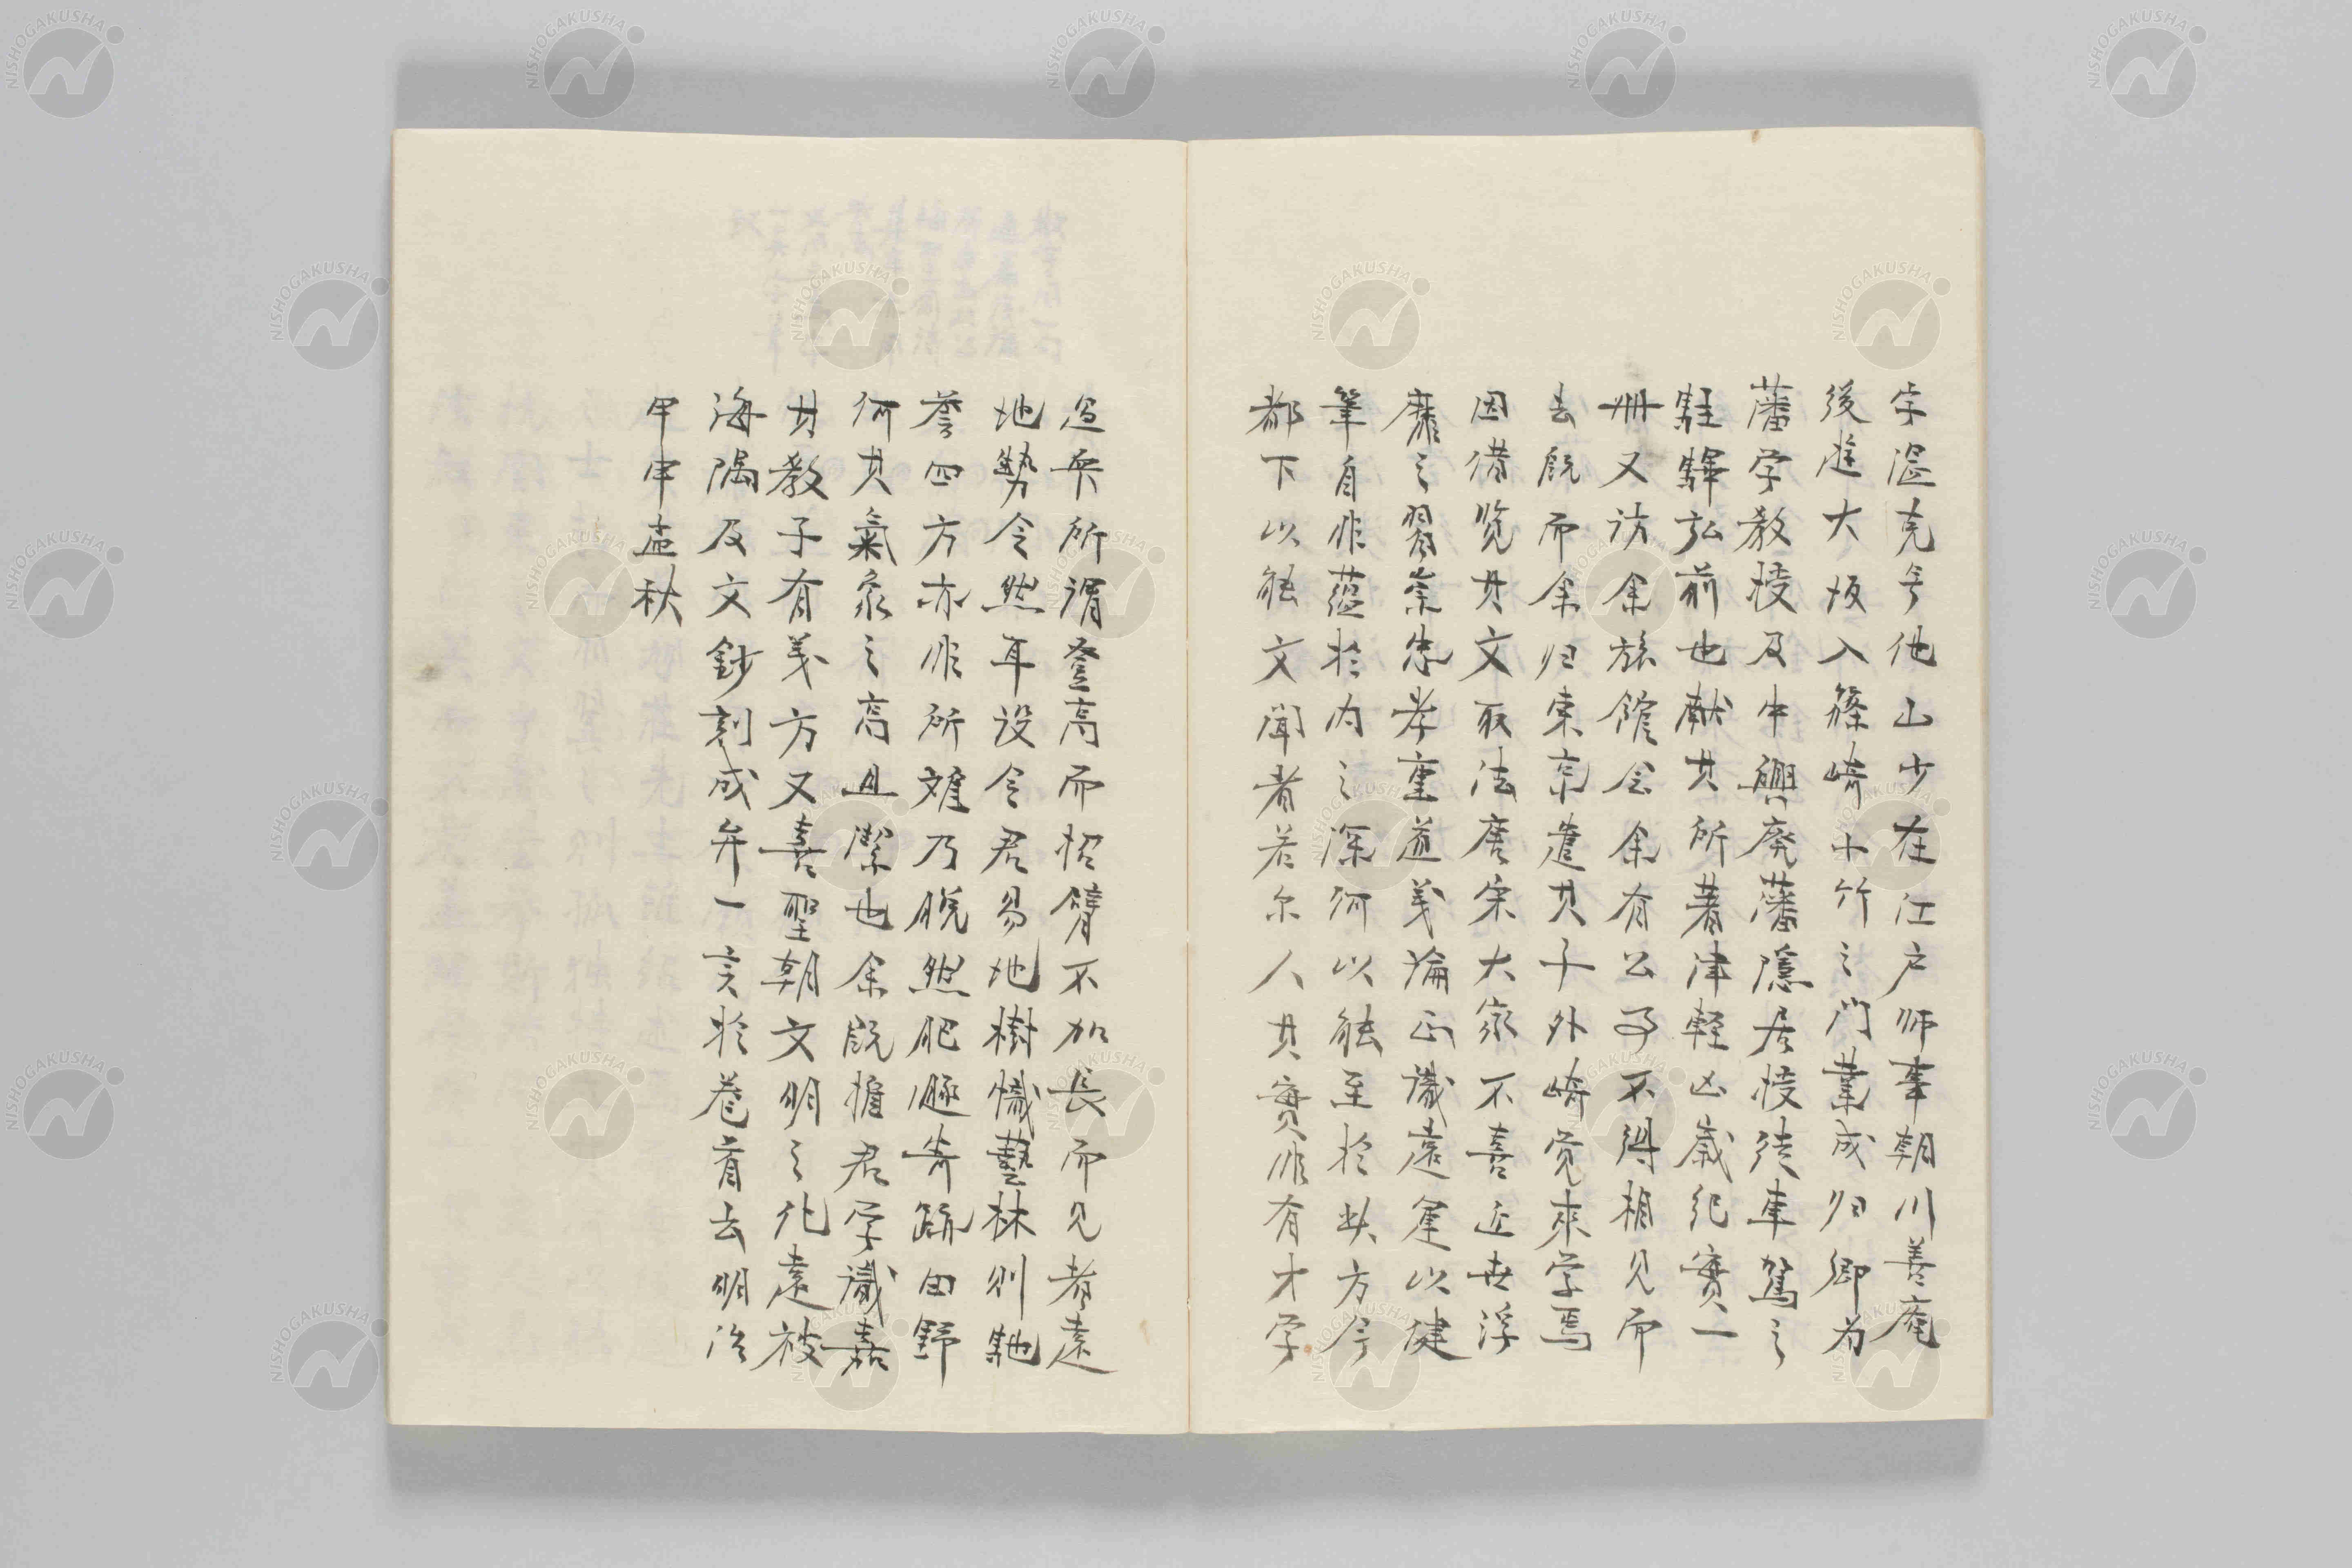 字温克号他山少在江户师事朝川善庵
後遊大坂入篠崎小竹之门業成归卿为
藩学教授及中興廃藩隠居授徒車駕之
駐驆弘前也献其所著津軽凶歳紀實一
冊又访余旅館会余有公事不得相见而
去既而余归東京遣其子外崎觉來学焉
因借览其文取法唐宋大家不喜近世浮
靡之習崇忠孝重道義論正識遠運以健
筆自非蘊於内之深何以能至於此方今
都下以能文聞者若尓人其實非有才学
過矣所谓登高而招臂不加長而见者遠
地勢令然耳设令君易地樹幟藝林则馳
誉四方亦非所難乃脱然肥遯寄跡田野
何其氣象之高且潔也余既推君学識嘉
其教子有義方又喜聖朝文明之化遠被
海隅及文鈔刻成弁一言於卷首云明治
甲申孟秋
NISHOGAKUSHA